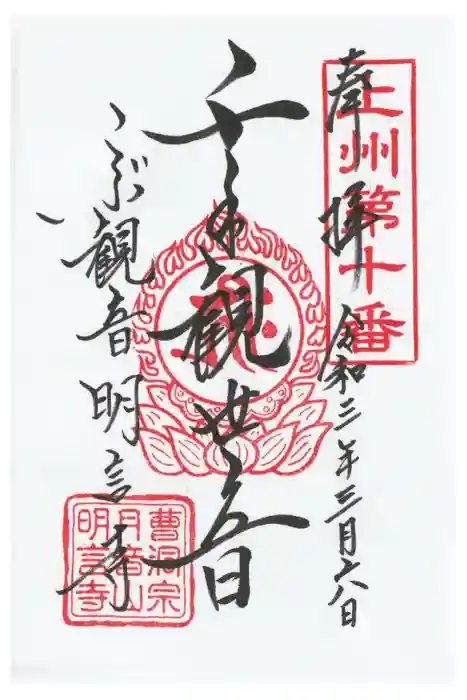 上州第十番
奉拝
令和三年三月六日
千手観世音
こぶ観音 明言寺
曹洞宗
月音山
明言寺